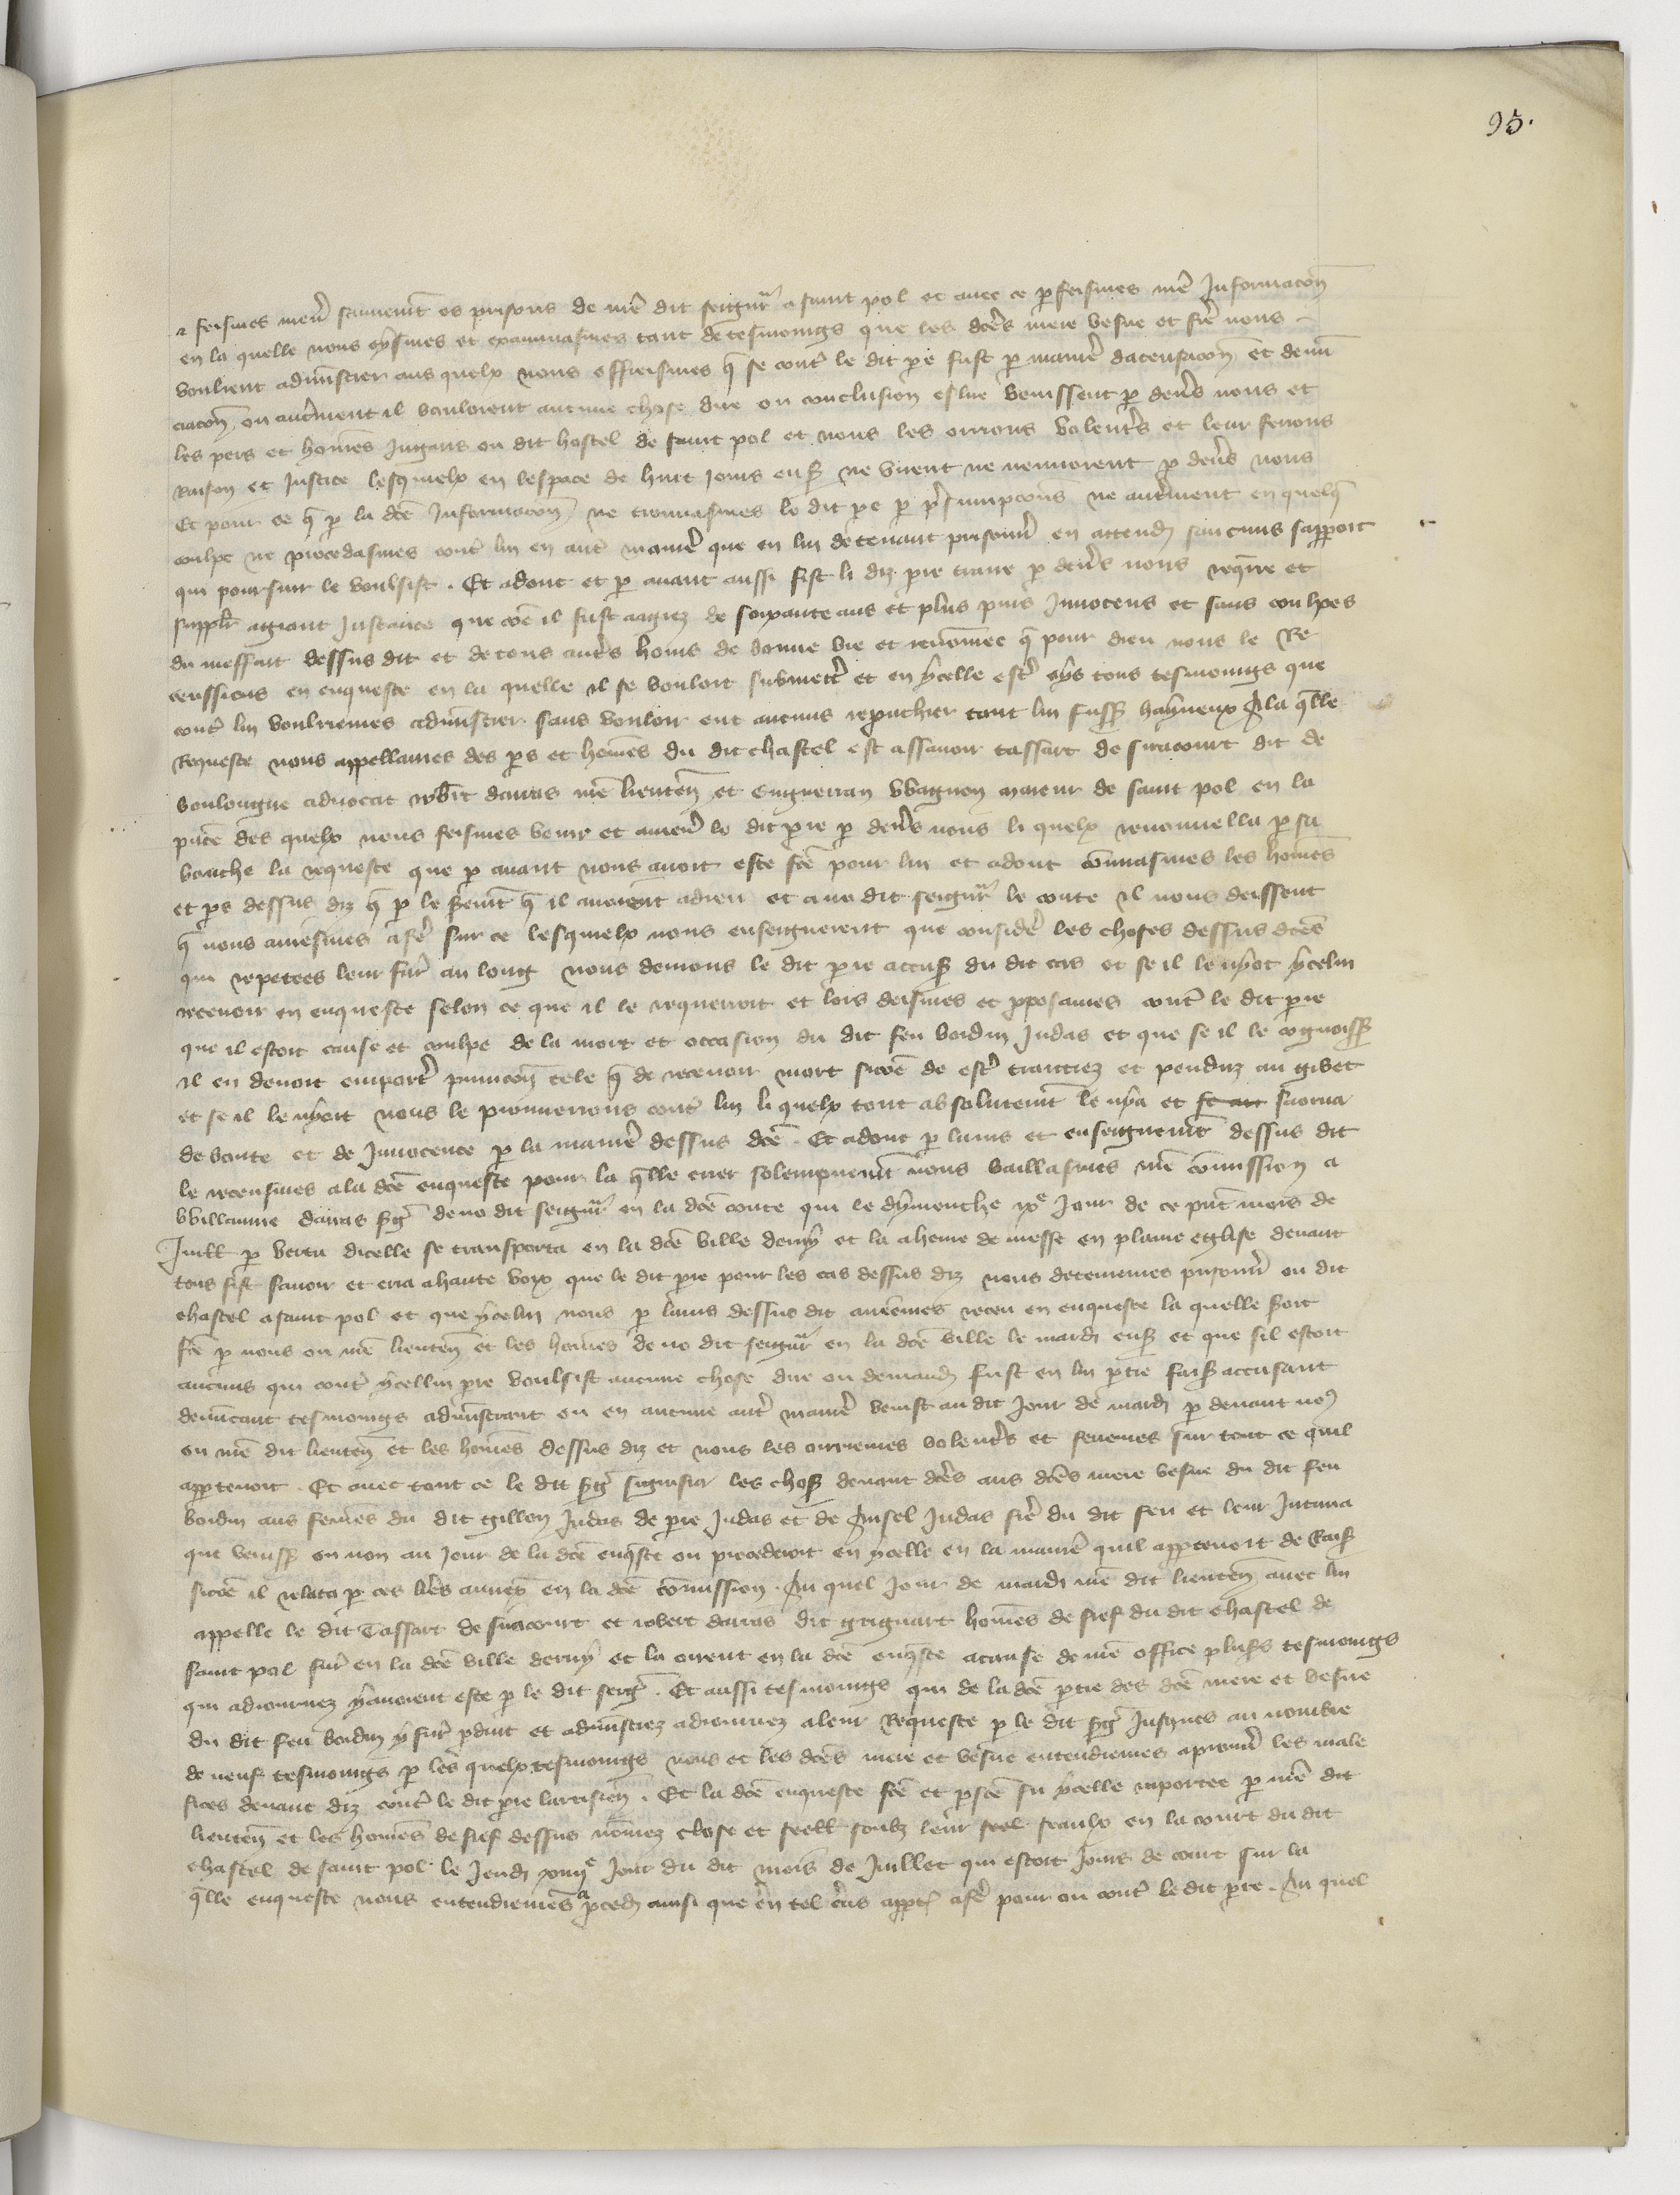 95.
⁊ feismes mener̄ sauuemēt es prisons de mr̄e dit seigneur̄ a saint pol et auec ce ꝑfeismes mr̄e Informacōn
en la quelle nous oÿsmes et examinasmes tant de tesmoings que les dc̄es mere vesue et fre͛ nous
voulrent admīstrer aus quelx nous offreismes q̄ se cont͛ le dit pr̄e fust ꝑ manier̄ dacusacōn et denū
ciacōn ou autr̄ment il vouloient aucune chose dire ou conclusion eslire venissent ꝑ deūs nous et
les pers et hom̄es Jugans ou dit hostel de saint pol et nous les orrions volentr̄s et leur ferions
Raison et Justice lesquelx en lespace de huit Jours ensꝭ ne vinrent ne envoierent ꝑ deūs nous
Et pour ce q̄ ꝑ la dc̄e Informacōn ne trouuasmes le dit pr̄e ꝑ pr̄sumpcōns ne autr̄ment en quelq̄
coulpe ne procedasmes cont͛ lui en aut͛ manier̄ que en lui detenant prisonn̄ en attendꝭ saucuns sapparoit
qui poursuir le voulsist . Et adont et ꝑ auant aussi fist li diz pr̄e traire ꝑ deūs nous req̄rre et
supplr̄ a grant Instance que cōe il fust aagiez de soixante ans et plus purs Innocens et sans coulpes
du meffait dessus dit et de tous autr̄s homs de bonne vie et renōmee q̄ pour dieu nous le Re
ceussiens en enqueste en la quelle il se vouloit submettr̄ et en ẏcelle estr̄ oẏs tous tesmoings que
cont͛ lui voulriemes admīstrer sans vouloir ent aucuns reprochier tant lui fussꝭ haẏneux A la q̄lle
Requeste nous appellames des ꝑs et hom̄es du dit chastel est assauoir tassart de siracourt dit de
boulongne aduocat rob̄t darras mr̄e lieuten̄ et Enguerran Wagnon maieur de saint pol en la
pñce des quelx nous feismes venir et amen͛ le dit pr̄e ꝑ deūs nous li quelx renouuella ꝑ sa
bouche la requeste que ꝑ auant nous auoit este fc̄e pour lui et adont cōniurasmes les hom̄es
et ꝑs dessus diz q̄ ꝑ le serem̄t q̄ il auoient a dieu et a no dit seigneur̄ le conte il nous deissent
q̄ nous auiesmes a fē sur ce lesquelx nous enseignerent que considēr les choses dessus dc̄es
qui repetees leur fur̄ au long nous deuions le dit pr̄e accusꝭ du dit cas et se il le nÿoit ẏcelui
receuoir en enqueste selon ce que il le requeroit et lors deismes et ꝓposames cont͛ le dit pr̄e
que il estoit cause et coulpe de la mort et occasion du dit feu boidin Judas et que se il le cognoissꝭ
il en deuoit emportr̄ punicōn tele q̄ de receuoir mort sicōe de estr̄ trainez et penduz au gibet
et se il le nÿoit nous le prouuerions cont͛ lui li quelx tout absolutem̄t le nÿa et saorna
de bonte et de Innocence ꝑ la manier̄ dessus dc̄e . Et adont ꝑ lauis et enseignem̄t dessus dit
le receusmes a la dc̄e enqueste pour la q̄lle crier solempnem̄t nous baillasmes mr̄e cōmission a
Willaume darras sꝭg̃ de no dit seigneur̄ en la dc̄e conte qui le dÿmenche xe Jour de ce pñt mois de
Juill̄ ꝑ vertu dicelle se transporta en la dc̄e ville derny et la a heure de messe en plaine eglise deuant
tous fist sauoir et cria a haute voix que le dit pr̄e pour les cas dessus diz nous deteniemes prisonn̄ ou dit
chastel a saint pol et que ẏcelui nous ꝑ lauis dessus dit auiēmes receu en enqueste la quelle seroit
fc̄e ꝑ nous ou mr̄e lieuten̄ et les hom̄es de no dit seigneur̄ en la dc̄e ville le mardi ensꝭ et que sil estoit
aucuns qui cont͛ ẏcellui pr̄e voulsist aucune chose dire ou demandꝭ fust en lui ꝑtie faisꝭ accusant
denūcant tesmoings admīstrant ou en aucune aut͛ manier̄ venist au dit Jour de mardi ꝑ deuant nꝰ
ou mr̄e dit lieuten̄ et les hom̄es dessus diz et nous les orriemes volentr̄s et feriemes sur tout ce quil
appertenoit . Et auec tout ce le dit sꝭg̃ signifia les chosꝭ deuant dc̄es aus dc̄es mere vesue du dit feu
boidin aus fem̄es du dit gillon Judas de pr̄e Judas et de Ansel Judas fre͛ du dit feu et leur Intima
que venissꝭ ou non au Jour de la dc̄e enq̄ste on procederoit en ycelle en la manier̄ quil appertenoit de Raisꝭ
sicōe il relata ꝑ ces lr̄es annex̄ en la dc̄e cōmission . Au quel Jour de mardi mr̄e dit lieuten̄ auec lui
appelle le dit Tassart de siracourt et robert darras dit grignart hom̄es de fief du dit chastel de
saint pol fur̄ en la dc̄e ville derny et la oirent en la dc̄e enq̄ste a cause de mr̄e office plusꝭs tesmoings
qui adiournez ÿ auoient este ꝑ le dit serg̃ . Et aussi tesmoings qui de la dc̄e ꝑtie des dc̄e mere et vesue
du dit feu boidin ÿ fur̄ ꝓduit et admīstrez adiournez a leur Requeste ꝑ le dit sꝭg̃ Jusques au nombre
de neuf tesmoings ꝑ les quelx tesmoings nous et les dc̄es mere et vesue entendiemes a prouu͛ les male
fices deuant diz cont͛ le dit pr̄e lartisien . Et la dc̄e enqueste fc̄e et ꝑfc̄e fu ẏcelle raportee ꝑ mr̄e dit
lieuten̄ et les hom̄es de fief dessus nōmez close et seell̄ soubz leur seel seaulx en la court du dit
chastel de saint pol le Jeudi xiiije Jour du dit mois de Juillet qui estoit Jours de court sur la
q̄lle enqueste nous entendiemes a ꝓcedꝭ ainsi que en tel cas appꝭt a fē pour ou cont͛ le dit pr̄e . Au quel